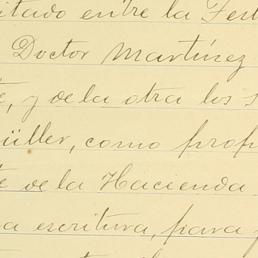 itado entre la Test
Doctor Martínez
e, y de la otra los s
üller, como prop
te de la Hacienda
a escritura, para